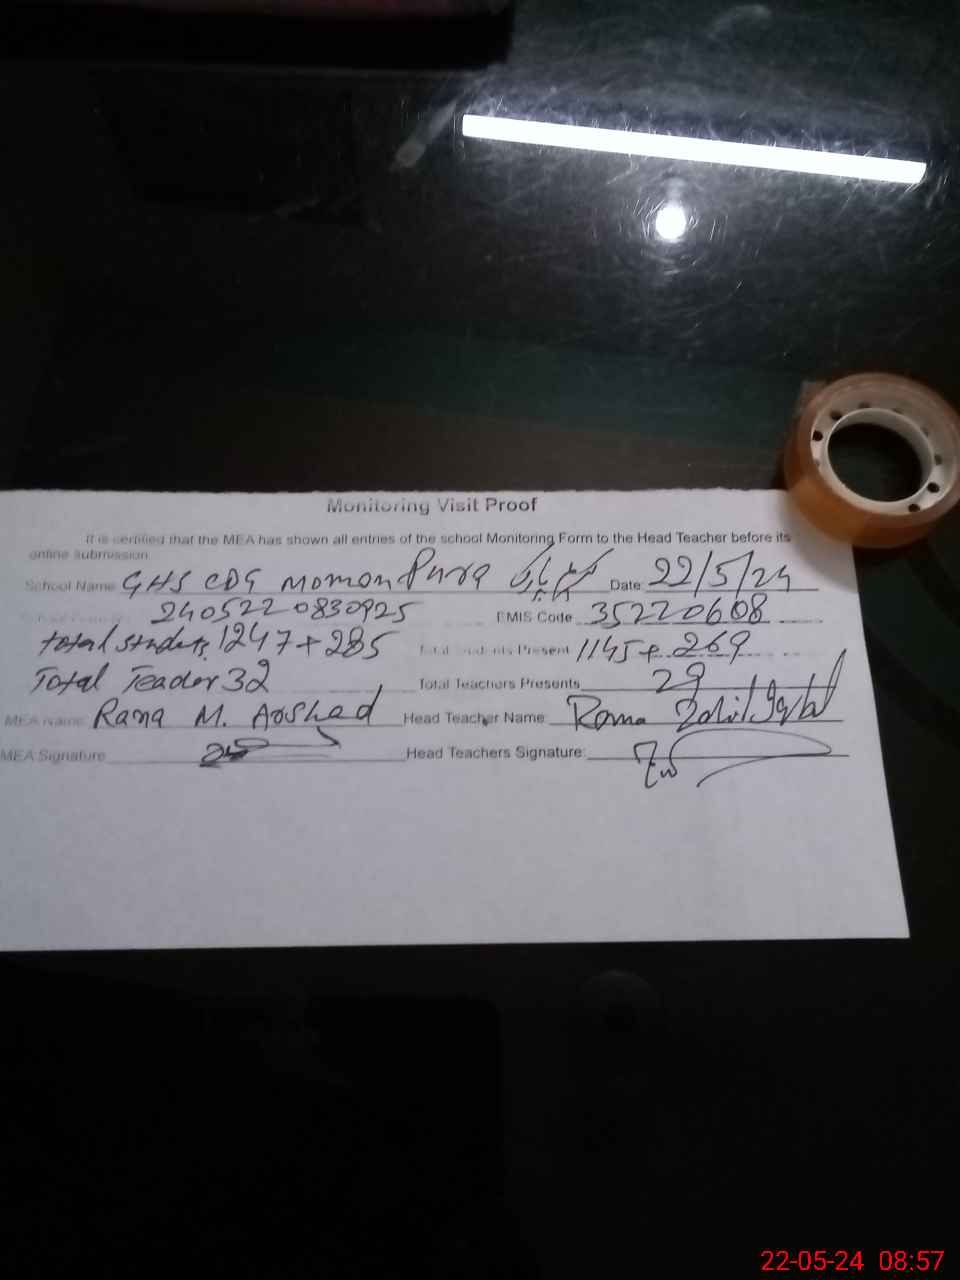 Monitoring Visit Proof
It is certified that the MEA has shown all entries of the school Monitoring Form to the Head Teacher before its
online submission
School Name GHS CDG Momon Pura Date: 22/5/24
240522 0830925 EMIS Code 35220608
total students 1247+285 Total Students Present 1145+269
Total Teacher 32 Total Teachers Presents 29
MEA Name Rana M. Arshad Head Teacher Name: Rana Zahid Iqbal
MEA Signature Head Teachers Signature:
22-05-24 08:57